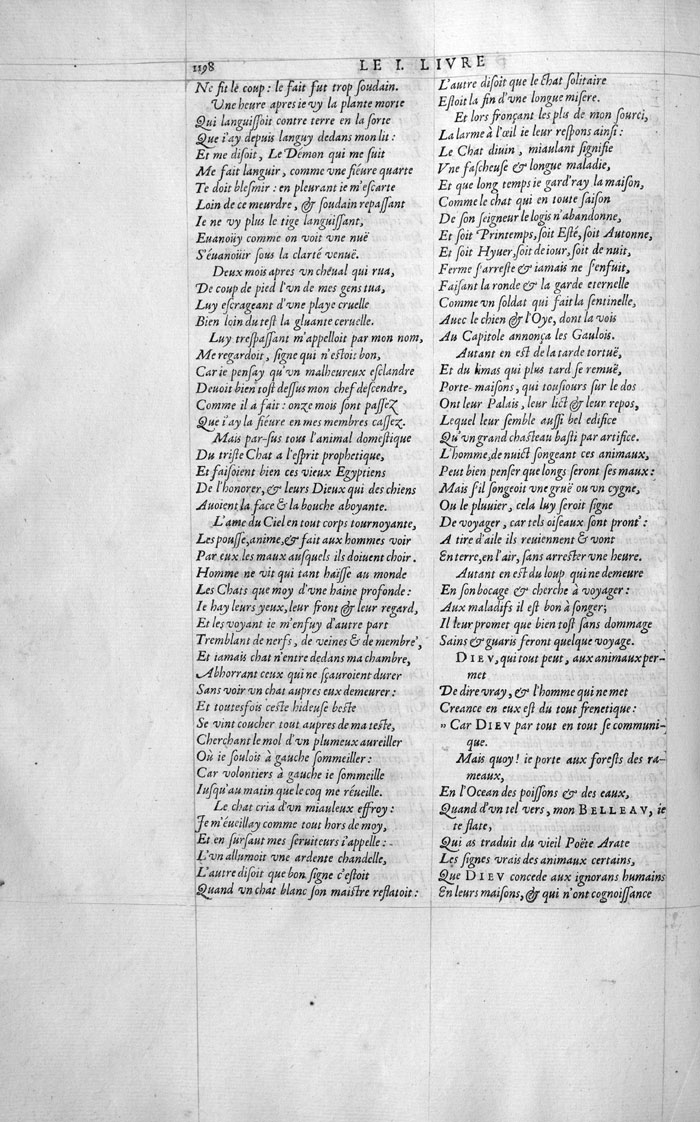 1198
LE I. LIVRE
Ne fit le coup : le fait fut trop ſoudain.
Vne heure apres ie vy la plante morte
Qui languiſſoit contre terre en la ſorte
Que i'ay depuis languy dedans mon lit :
Et me diſoit, Le Démon qui me ſuit
Me fait languir, comme vne fiéure quarte
Te doit bleſmir : en pleurant ie m'eſcarte
Loin de ce meurdre, & ſoudain repaſſant
Ie ne vy plus le tige languiſſant,
Euanoüy comme on voit vne nuë
S'éuanoüir ſous la clarté venuë.
Deux mois apres vn chéual qui rua,
De coup de pied l'vn de mes gens tua,
Luy eſcrageant d'vne playe cruelle
Bien loin du teſt la gluante ceruelle.
Luy treſpaſſant m'appelloit par mon nom,
Me regardoit, ſigne qui n'eſtoit bon,
Car ie penſay qu'vn malheureux eſclandre
Deuoit bien toſt deſſus mon chef deſcendre,
Comme il a fait : onze mois ſont paſſez
Que i'ay la fiéure en mes membres caſſez.
Mais par-ſus tous l'animal domeſtique
Du triſte Chat a l'eſprit prophetique,
Et faiſoient bien ces vieux Egyptiens
De l'honorer, & leurs Dieux qui des chiens
Auoient la face & la bouche aboyante.
L'ame du Ciel en tout corps tournoyante,
Les pouſſe, anime, & fait aux hommes voir
Par eux les maux auſquels ils doiuent choir.
Homme ne vit qui tant haïſſe au monde
Les Chats que moy d'vne haine profonde :
Ie hay leurs yeux, leur front & leur regard,
Et les voyant ie m'enfuy d'autre part
Tremblant de nerfs, de veines & de membre',
Et iamais chat n'entre dedans ma chambre,
Abhorrant ceux qui ne ſçauroient durer
Sans voir vn chat aupres eux demeurer :
Et toutesfois ceſte hideuſe beſte
Se vint coucher tout aupres de ma teſte,
Cherchant le mol d'vn plumeux aureiller
Où ie ſoulois à gauche ſommeiller :
Car volontiers à gauche ie ſommeille
Iuſqu'au matin que le coq me réueille.
Le chat cria d'vn miauleux effroy :
Je m'éueillay comme tout hors de moy,
Et en ſurſaut mes ſeruiteurs i'appelle :
L'vn allumoit vne ardente chandelle,
L'autre diſoit que bon ſigne c'eſtoit
Quand vn chat blanc ſon maiſtre reflatoit :
L'autre diſoit que le Chat ſolitaire
Eſtoit la fin d'vne longue miſere.
Et lors fronçant les plis de mon ſourci,
La larme à l'œil ie leur reſpons ainſi :
Le Chat diuin, miaulant ſignifie
Vne faſcheuſe & longue maladie,
Et que long temps ie gard'ray la maiſon,
Comme le chat qui en toute ſaiſon
De ſon ſeigneur le logis n'abandonne,
Et ſoit Printemps, ſoit Eſté, ſoit Autonne,
Et ſoit Hyuer, ſoit de iour, ſoit de nuit,
Ferme s'arreſte & iamais ne s'enfuit,
Faiſant la ronde & la garde eternelle
Comme vn ſoldat qui fait la ſentinelle,
Auec le chien & l'Oye, dont la vois
Au Capitole annonça les Gaulois.
Autant en eſt de la tarde tortuë,
Et du limas qui plus tard ſe remuë,
Porte-maiſons, qui touſiours ſur le dos
Ont leur Palais, leur lict & leur repos,
Lequel leur ſemble auſſi bel edifice
Qu'vn grand chaſteau baſti par artifice.
L'homme, de nuict ſongeant ces animaux,
Peut bien penſer que longs ſeront ſes maux :
Mais s'il ſongeoit vne gruë ou vn cygne,
Ou le pluuier, cela luy ſeroit ſigne
De voyager, car tels oiſeaux ſont pront' :
A tire d'aile ils reuiennent & vont
En terre, en l'air, ſans arreſter vne heure.
Autant en eſt du loup qui ne demeure
En ſon bocage & cherche à voyager :
Aux maladifs il eſt bon à ſonger ;
Il leur promet que bien toſt ſans dommage
Sains & guaris feront quelque voyage.
DIEV, qui tout peut, aux animaux per-
met
De dire vray, & l'homme qui ne met
Creance en eux eſt du tout frenetique :
„ Car DIEV par tout en tout ſe communi-
que.
Mais quoy ! ie porte aux foreſts des ra-
meaux,
En l'Ocean des poiſſons & des eaux,
Quand d'vn tel vers, mon BELLEAV, ie
te flate,
Qui as traduit du vieil Poëte Arate
Les ſignes vrais des animaux certains,
Que DIEV concede aux ignorans humains
En leurs maiſons, & qui n'ont cognoiſſance